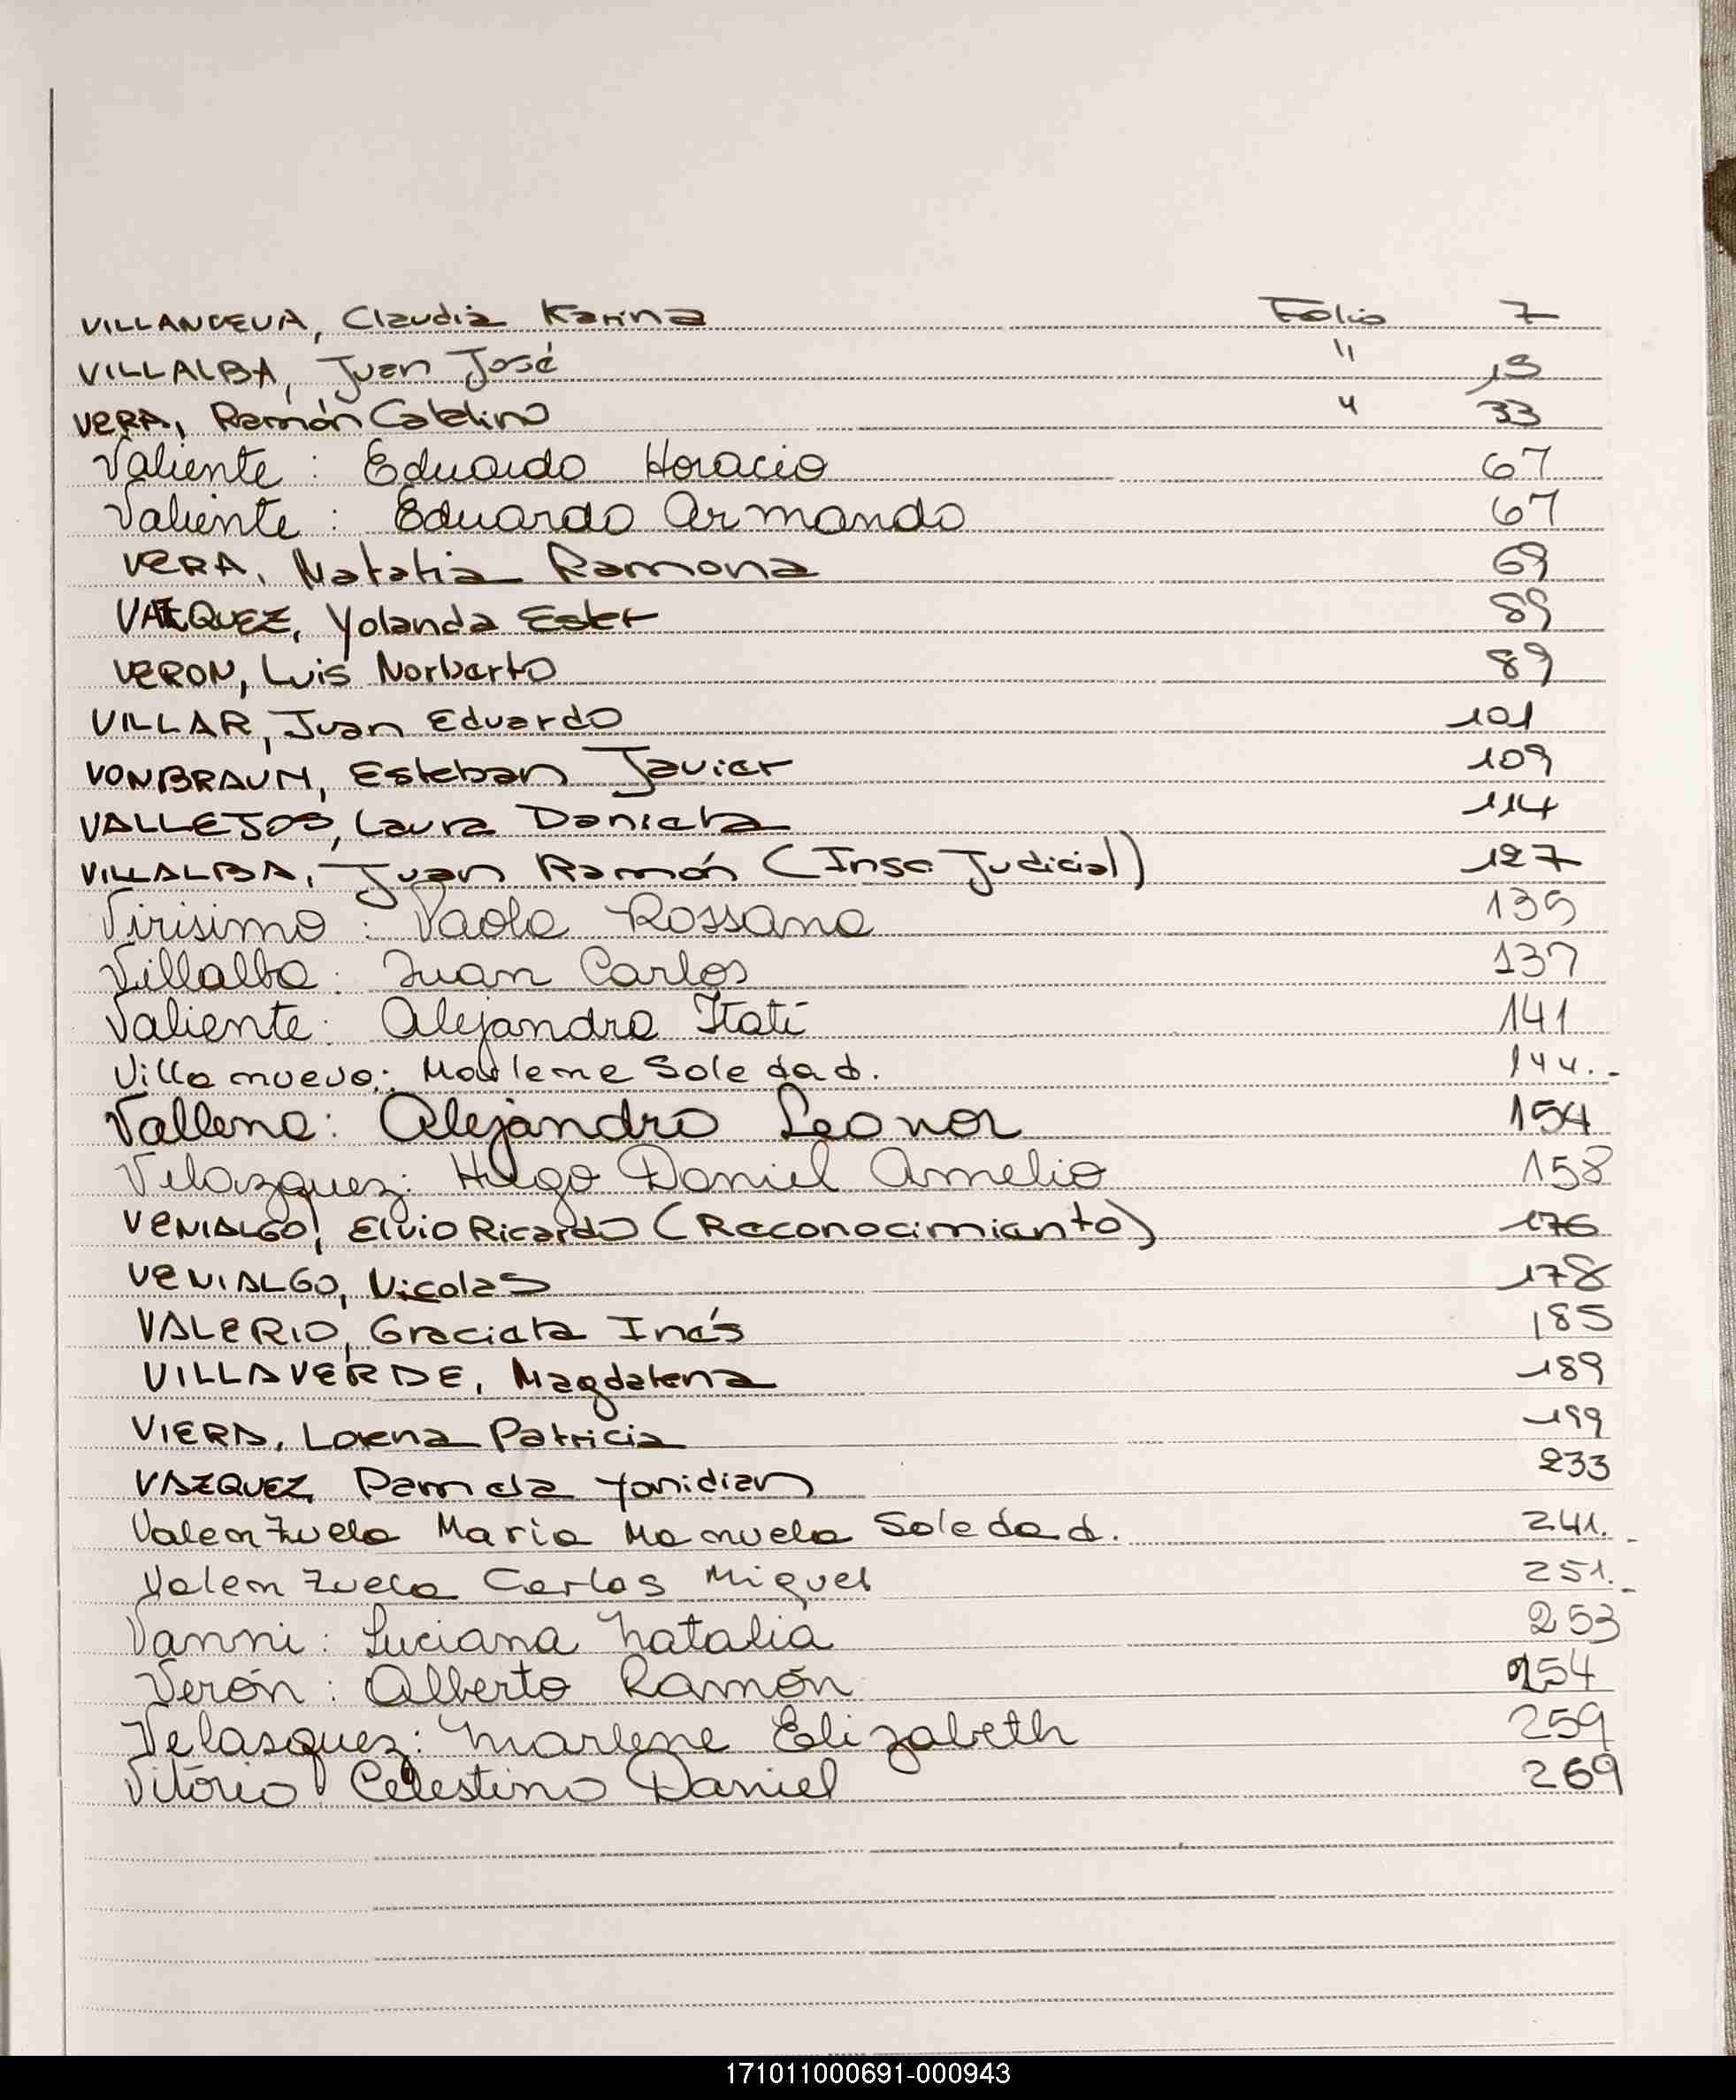 VILLANUEVA, Claudia Karina Folio 7
VILLALBA, Juan José " 13
VERA, Ramón Catalino " 33
Valiente : Eduardo Horacio 67
Valiente : Eduardo Armando 67
VERA, Natalia Ramona 69
VAZQUEZ, Yolanda Ester 89
VERON, Luis Norberto 89
VILLAR, Juan Eduardo 101
VONBRAUN, Esteban Javier 109
VALLEJOS, Laura Daniela 114
VILLALBA, Juan Ramón (Insc Judicial) 127
Virisimo : Paola Rossana 135
Villalba : Juan Carlos 137
Valiente : Alejandra Itatí 141
Villa nueva : Marlene Soledad. 144.-
Vallena : Alejandra Leonor 154
Velazquez : Hugo Daniel Amelio 158
VENIALGO, Elvio Ricardo (Reconocimiento) 176
VENIALGO, Nicolas 178
VALERIO, Graciela Inés 185
VILLAVERDE, Magdalena 189
VIERA, Lorena Patricia 199
VAZQUEZ, Pamela Yanidian 233
Valenzuela Maria Manuela Soledad. 241.-
Valenzuela Carlos Miguel 251.-
Vanni : Luciana Natalia 253
Verón : Alberto Ramón 254
Velasquez : Marlene Elizabeth 259
Vitorio Celestino Daniel 269
171011000691-000943